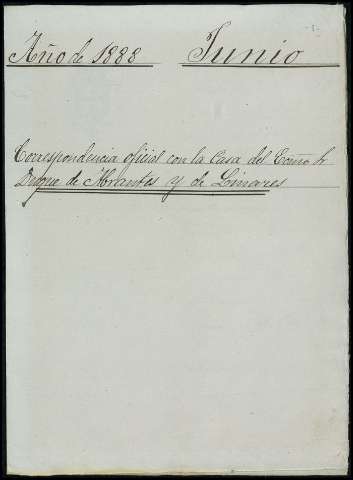 Año de 1888 Junio
Correspondencia oficial con la Casa del Excmo Sr
Duque de Abrantes y de Linares